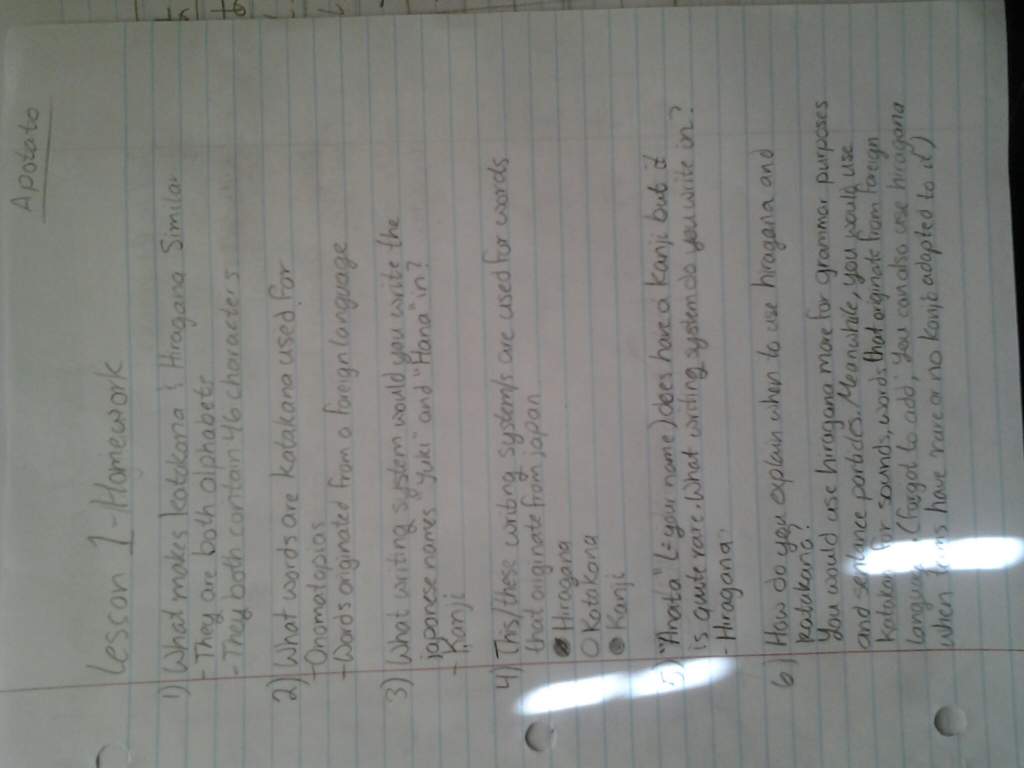 Apotato
Lesson 1 - Homework
1) What makes katakana & Hiragana Similar
- They are both alphabets
- They both contain 46 characters
2) What words are katakana used for
- Onomatopias
- Words originated from a foreign language
3) What writing system would you write the
japanese names "yuki" and "Hana" in?
- Kanji
4) This/these writing system/s are used for words
that originate from japan
Hiragana
Katakana
Kanji
5) "Anata" (=your name) does have a kanji but it
is quite rare. What writing system do you write in?
- Hiragana
6) How do you explain when to use hiragana and
katakana?
You would use hiragana more for grammar purposes
and sentence particles. Meanwhile, you would use
katakana for sounds, words that originate from foreign
language. (Forgot to add, you can also use hiragana
when have rare or no kanji adapted to it)